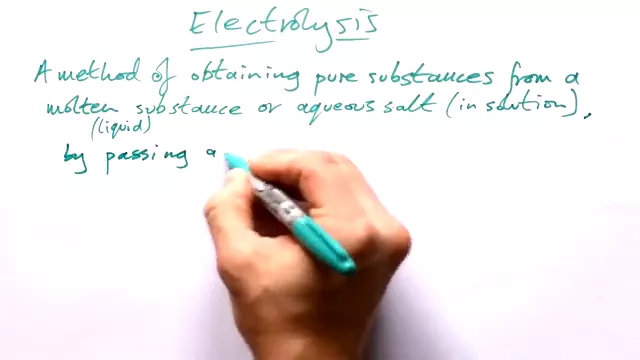 Electrolysis
A method of obtaining pure substances from a
molten substance or aqueous salt (in solution),
(liquid)
by passing a